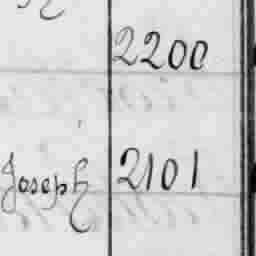 2200
Joseph 2101